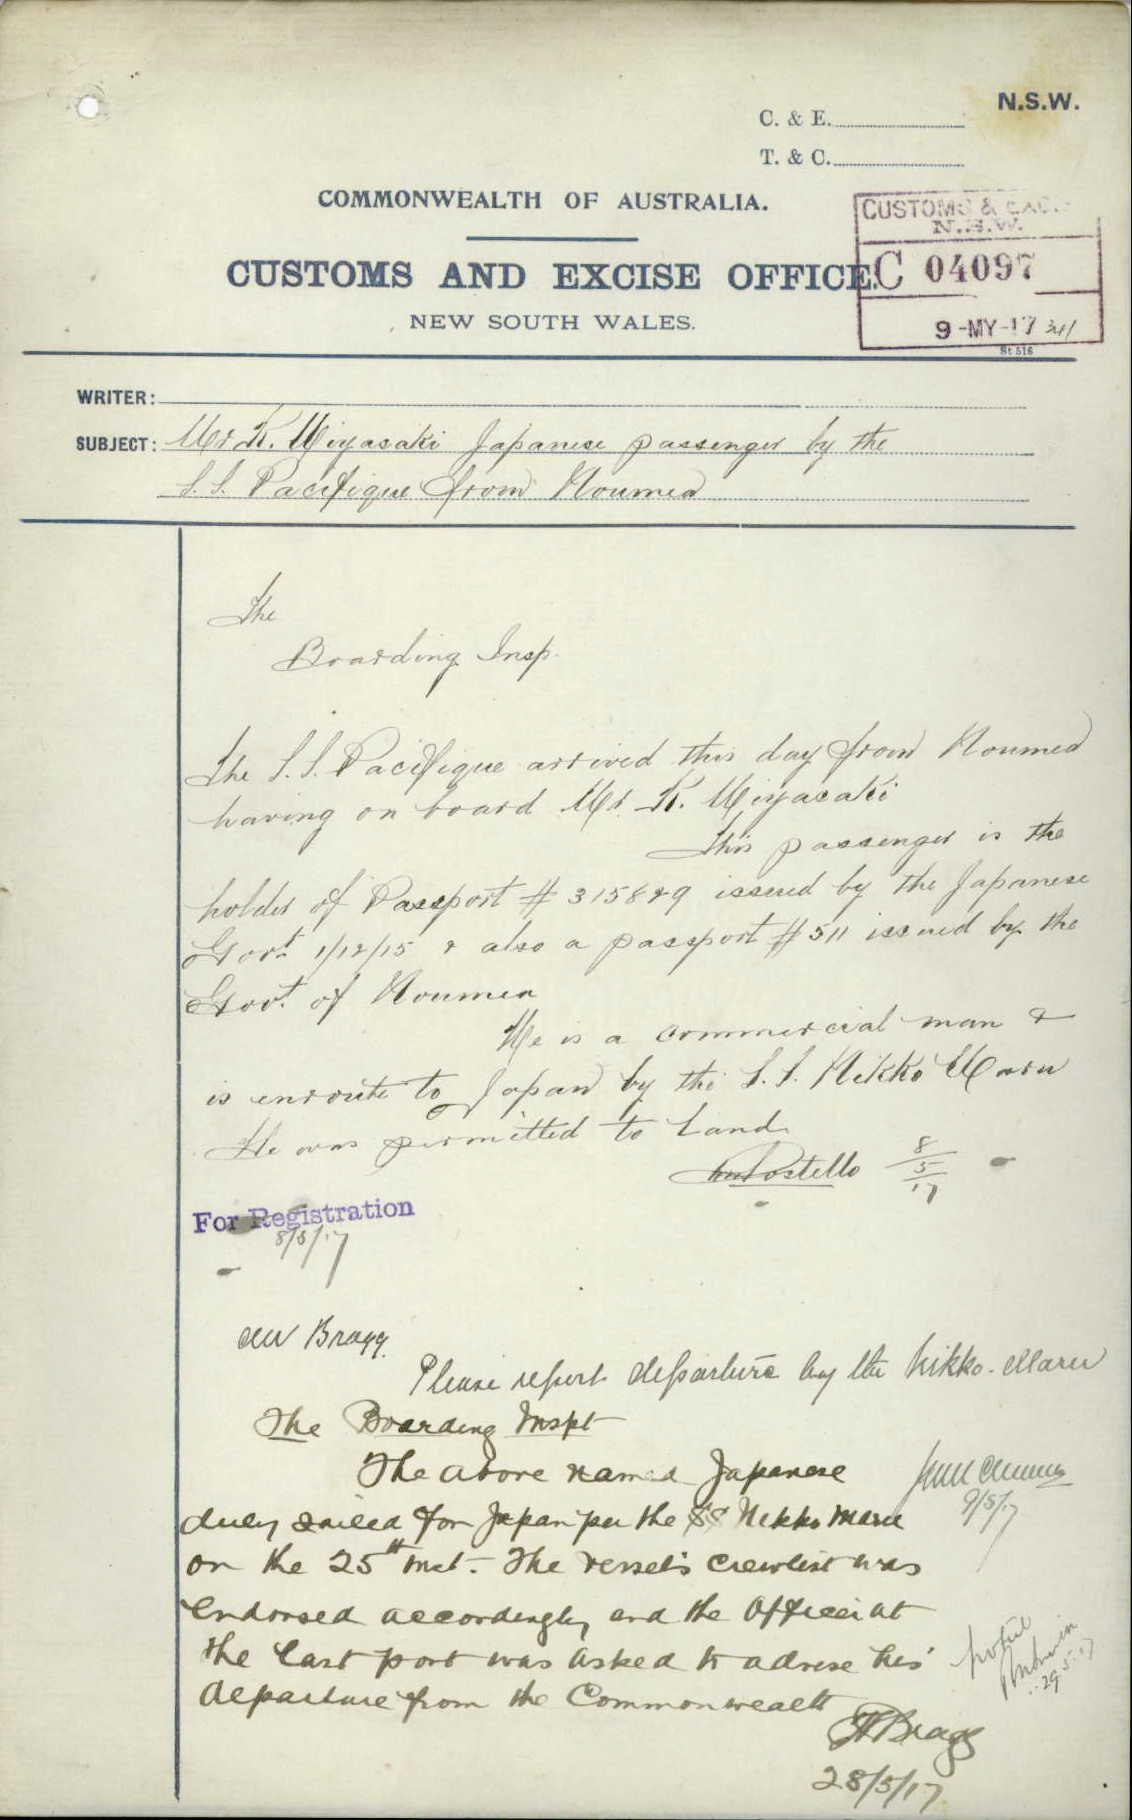 N.S.W.
C. & E.
T. & C.
COMMONWEALTH OF AUSTRALIA.
CUSTOMS AND EXCISE OFFICE.
NEW SOUTH WALES.
CUSTOMS & EXCISE
N.S.W.
C 04097
9-MY-17
St 516
WRITER:
SUBJECT: Mr K. Miyasaki Japanese passenger by the
S.S. Pacifique from Noumea
The
Boarding Insp.
The S.S. Pacifique arrived this day from Noumea
having on board Mr. K. Miyasaki
This passenger is the
holder of Passport # 315829 issued by the Japanese
Govt. 1/12/15 & also a passport # 511 issued by the
Govt. of Noumea
He is a commercial man &
is enroute to Japan by the S.S. Nikko Maru
He was permitted to land.
Costello 8/5/17
For Registration
8/5/17
Mr Bragg.
Please report departure by the Nikko-Maru
9/5/17
The Boarding Inspt
The above named Japanese
duly sailed for Japan per the SS Nikko Maru
on the 25th inst. The vessel's crewlist was
endorsed accordingly and the Officer at
the last port was asked to advise his
departure from the Commonwealth
Bragg
28/5/17
29.5.17